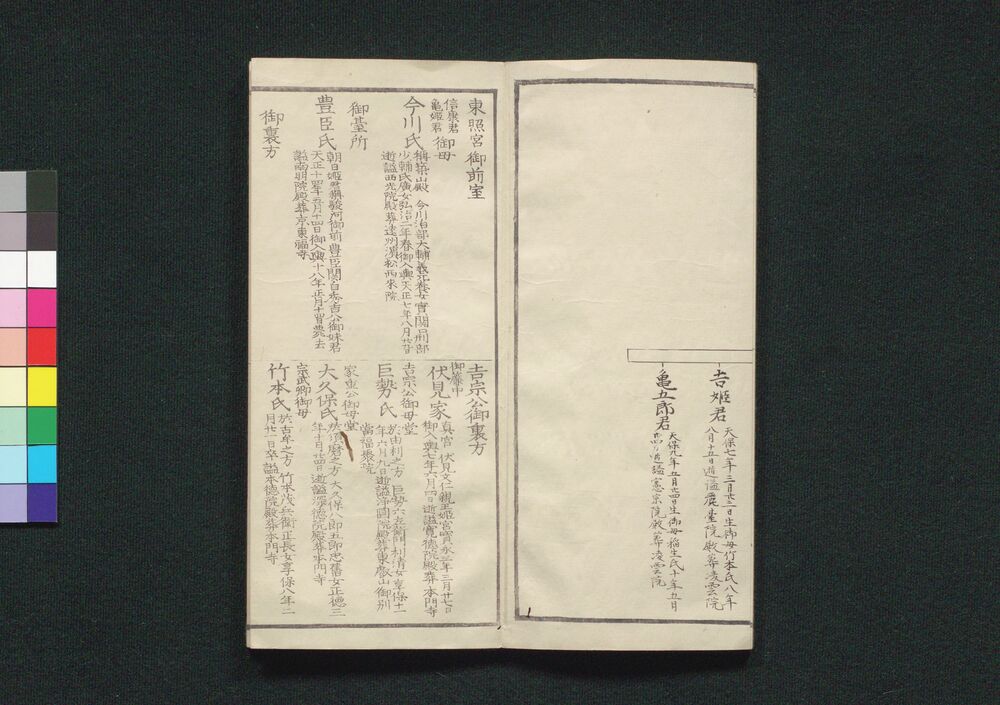 吉姫君
天保七年三月廿三日生御母竹本氏八年
八月十五日逝謚麗臺院殿葬凌雲院
亀五郎君
天保九年五月廿四日生御母稲生氏十年五月
逝謚憲宗院殿葬凌雲院
東照宮御前室
信康君
亀姫君
御母
今川氏
称築山殿 今川治部大輔義元養女実関口刑部
少輔氏廣女弘治二年春御入輿天正七年八月廿
逝謚西光院殿葬遠州濱松西来院
御臺所
豊臣氏
朝日姫君称駿河御前豊臣関白秀吉公御妹君
天正十四年五月十四日御入輿十八年正月十四日薨去
謚南明院殿葬京東福寺
御裏方
吉宗公御裏方
御簾中
伏見家
真宮 伏見文仁親王姫宮寛永三年三月廿七日
御入輿七年六月四日逝謚寛徳院殿葬本門寺
吉宗公御母堂
巨勢氏
於由利之方 巨勢六左衛門利清女享保十一
年六月九日逝謚浄圓院殿葬東叡山御別
當福聚院
家重公御母堂
大久保氏
於須磨之方 大久保八郎五郎忠舊女正徳三
年十月廿四日逝謚深徳院殿葬本門寺
宗武卿御母
竹本氏
於古牟之方 竹本茂兵衛正長女享保八年二
月廿一日卒 謚本徳院殿葬本門寺